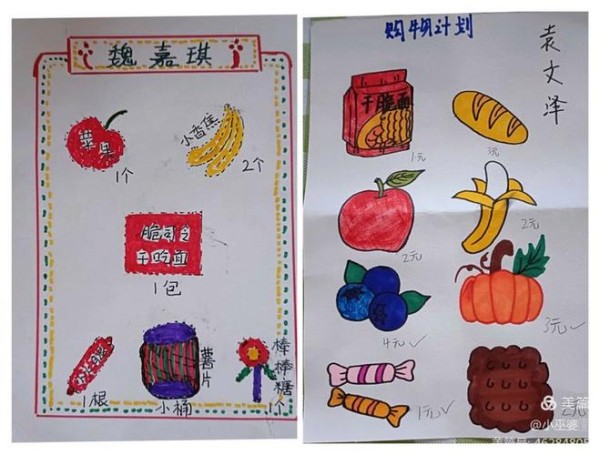 魏嘉琪
苹果
1个
小香蕉
2个
脆司令
干吃面
1包
1根
薯片
小桶
棒棒糖
1个
购物计划
袁文泽
干脆面
1元
3元
2元
2元
4元✓
3元✓
1元✓
2元
美篇
@小巫婆